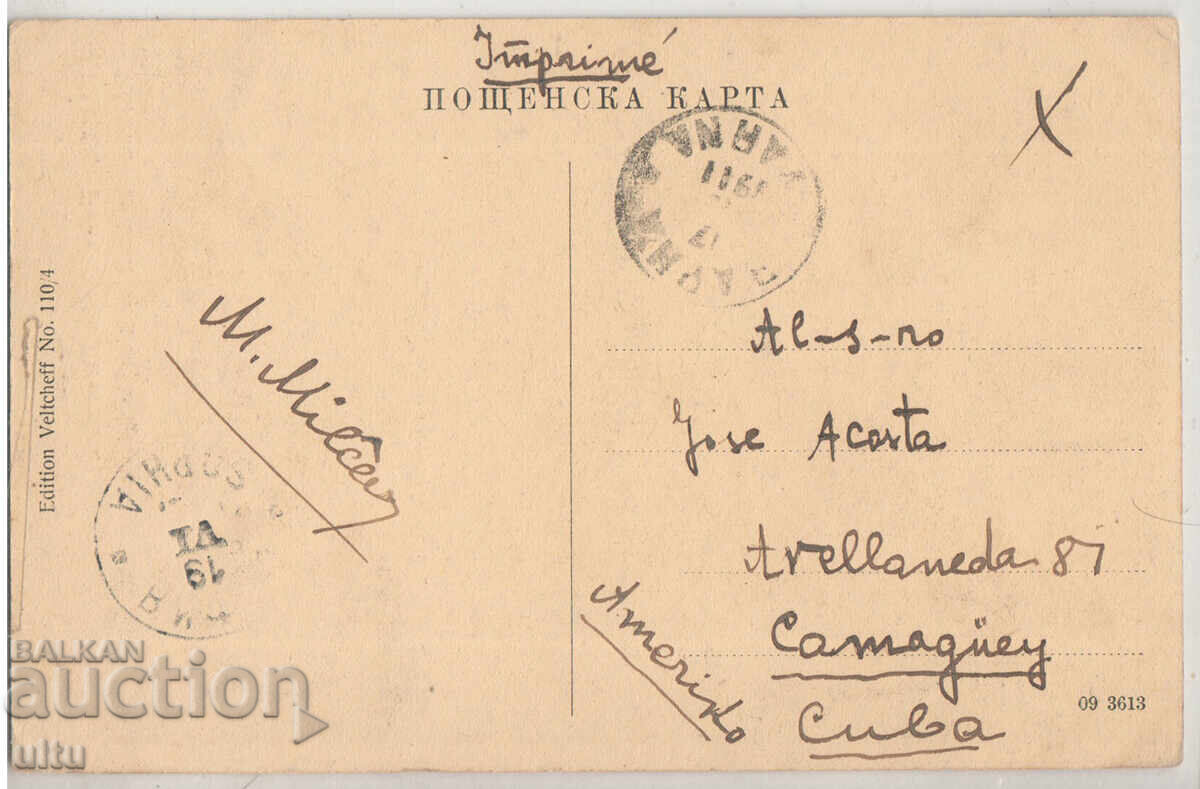 Imprimé
ПОЩЕНСКА КАРТА
X
VARNA
1911
Edition Veltcheff No. 110/4
M. Milčev
SOPHIA
VI
19
Al-s-ro
Jose Acosta
Avellaneda 87
Camagüey
Ameriko
Cuba
09 3613
BALKAN
auction
ultu